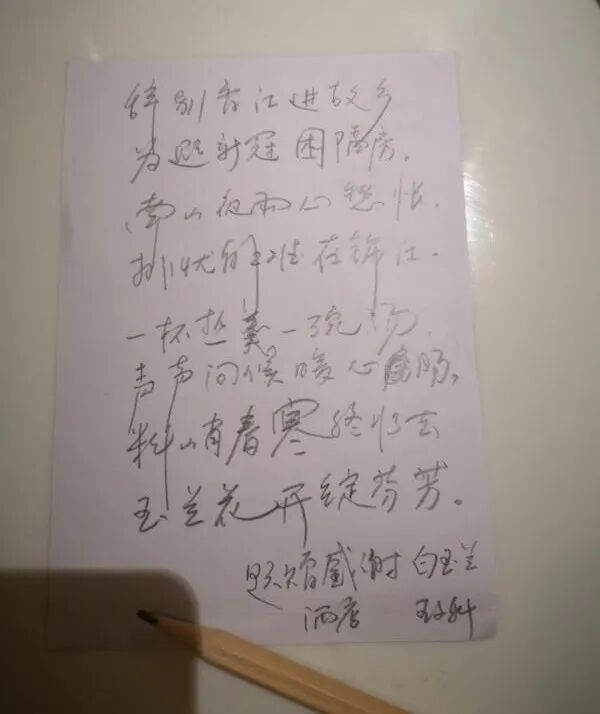 辞别香江进故乡
为避新冠困隔房。
南山夜雨心愁怅.
排忧解难在锦江.
一杯热羹一碗汤.
声声问候暖心肠。
料峭春寒终将去
玉兰花开绽芬芳。
感谢白玉兰
酒店